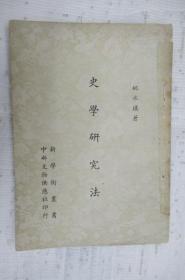 姚永璞著
史學研究法
新學術叢書
中外文物供應社印行